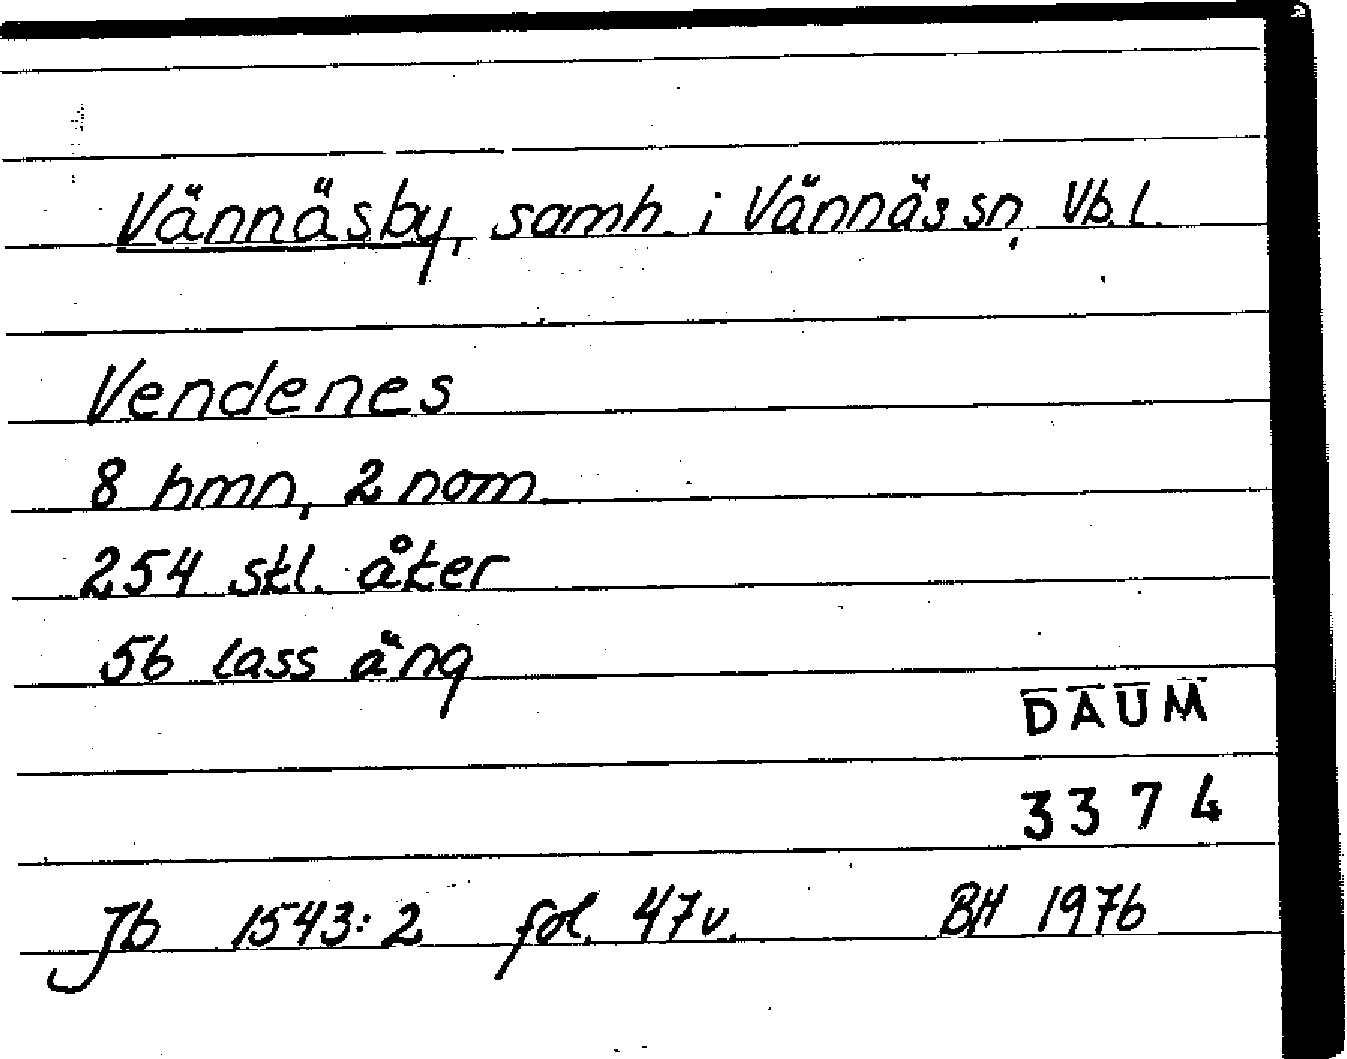 Vännäsby, samh. i Vännäs sn, Vb.l.
Vendenes
8 hmn, 2 nom
254 skl. åker
56 lass äng
DAUM
3374
Jb 1543:2 fol. 47v. BH 1976